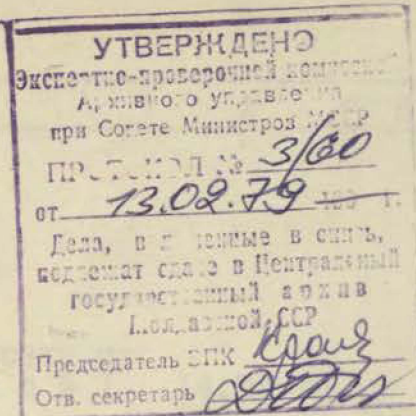 УТВЕРЖДЕНО
Экспертно-проверочной комиссией
Архивного управления
при Совете Министров МССР
ПРОТОКОЛ № 3/60
от 13.02.79 г.
Дела, включенные в опись,
подлежат сдаче в Центральный
государственный архив
Молдавской ССР
Председатель ЭПК
Отв. секретарь